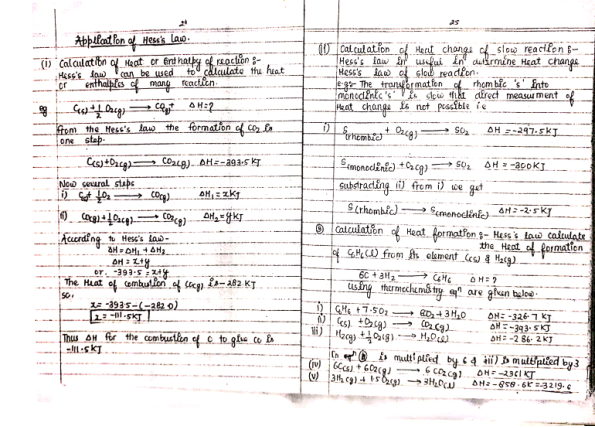 24
Application of Hess's Law.
(i) Calculation of Heat or Enthalpy of reaction :-
Hess's law can be used to calculate the heat
or enthalpies of many reaction.
eg C(s) + ½ O2(g) → CO(g) ΔH = ?
from the Hess's law the formation of CO2 is
one step.
C(s) + O2(g) → CO2(g) ΔH = -393.5 KJ
Now several steps
i) C(s) + ½ O2 → CO(g) ΔH1 = x KJ
ii) CO(g) + ½ O2(g) → CO2(g) ΔH2 = y KJ
According to Hess's law -
ΔH = ΔH1 + ΔH2
ΔH = x+y
or. -393.5 = x+y
The Heat of combustion of CO(g) is -282 KJ
so,
x = -393.5 - (-282.0)
x = -111.5 KJ
Thus ΔH for the combustion of C to give CO is
-111.5 KJ
25
(ii) Calculation of Heat change of slow reaction :-
Hess's law is useful in determine Heat change
Hess's law of slow reaction.
e.g:- The transformation of rhombic 's' into
monoclinic 's' is slow that direct measurment of
Heat change is not possible i.e
i) S(rhombic) + O2(g) → SO2 ΔH = -297.5 KJ
S(monoclinic) + O2(g) → SO2 ΔH = -300 KJ
substracting ii) from i) we get
S(rhombic) → S(monoclinic) ΔH = -2.5 KJ
Calculation of Heat formation :- Hess's law calculate
the Heat of formation
of C6H6(l) from its element C(s) & H2(g)
6C + 3H2 → C6H6 ΔH = ?
using thermochemistry eqn are given below.
i) C6H6 + 7.5O2 → 6O2 + 3H2O ΔH = -326.7 KJ
ii) C(s) + O2(g) → CO2(g) ΔH = -393.5 KJ
iii) H2(g) + ½ O2(g) → H2O(l) ΔH = -286.2 KJ
is multiplied by 6 & iii) is multiplied by 3
(iv) 6C(s) + 6O2(g) → 6CO2(g) ΔH = -2361 KJ
(v) 3H2(g) + 1.5O2(g) → 3H2O(l) ΔH = -858.6K = -3219.6